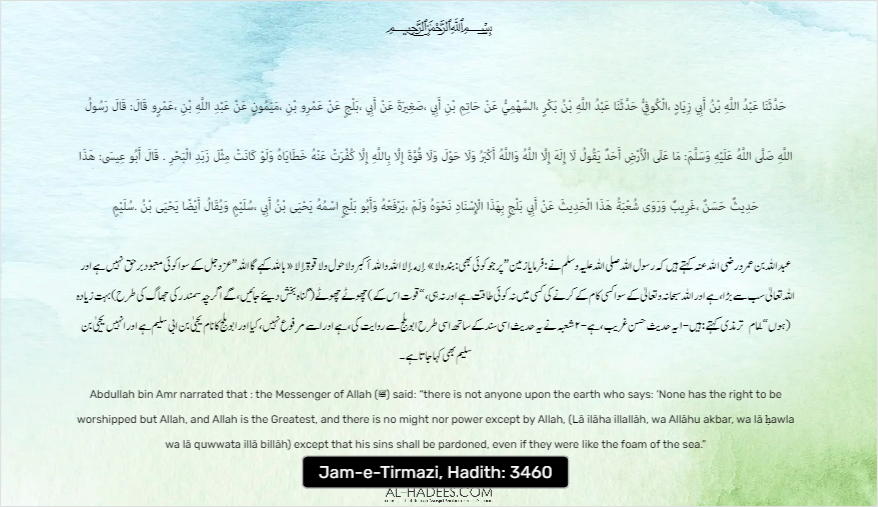 بِسْمِ اللهِ الرَّحْمٰنِ الرَّحِيْمِ
حَدَّثَنَا عَبْدُ اللَّهِ بْنُ أَبِي زِيَادٍ ،الْكُوفِيُّ حَدَّثَنَا عَبْدُ اللَّهِ بْنُ بَكْرٍ ،السَّهْمِيُّ عَنْ حَاتِمِ بْنِ أَبِي ،صَغِيرَةَ عَنْ أَبِي ،بَلْجٍ عَنْ عَمْرِو بْنِ ،مَيْمُونٍ عَنْ عَبْدِ اللَّهِ بْنِ ،عَمْرٍو قَالَ: قَالَ رَسُولُ
اللَّهِ صَلَّى اللَّهُ عَلَيْهِ وَسَلَّمَ: مَا عَلَى الْأَرْضِ أَحَدٌ يَقُولُ لَا إِلَهَ إِلَّا اللَّهُ وَاللَّهُ أَكْبَرُ وَلَا حَوْلَ وَلَا قُوَّةَ إِلَّا بِاللَّهِ إِلَّا كُفِّرَتْ عَنْهُ خَطَايَاهُ وَلَوْ كَانَتْ مِثْلَ زَبَدِ الْبَحْرِ . قَالَ أَبُو عِيسَى: هَذَا
حَدِيثٌ حَسَنٌ ،غَرِيبٌ وَرَوَى شُعْبَةُ هَذَا الْحَدِيثَ عَنْ أَبِي بَلْجٍ بِهَذَا الْإِسْنَادِ نَحْوَهُ وَلَمْ ،يَرْفَعْهُ وَأَبُو بَلْجٍ اسْمُهُ يَحْيَى بْنُ أَبِي ،سُلَيْمٍ وَيُقَالُ أَيْضًا يَحْيَى بْنُ .سُلَيْمٍ
عبداللہ بن عمرو رضی الله عنہ کہتے ہیں کہ رسول اللہ صلی اللہ علیہ وسلم نے : فرمایا زمین ”پر جو کوئی بھی : بندہ لا» ،إله إلا الله والله أكبر ولا حول ولا قوة إلا «بالله کہے گا اللہ ”عزوجل کے سوا کوئی معبود برحق نہیں ہے اور
اللہ تعالیٰ سب سے بڑا ،ہے اور اللہ سبحانہ وتعالیٰ کے سوا کسی کام کے کرنے کی کسی میں نہ کوئی طاقت ہے اور نہ ہی ،“قوت اس کے ) چھوٹے چھوٹے ( گناہ بخش دیئے جائیں ،گے اگرچہ سمندر کی جھاگ کی طرح ) بہت زیادہ
( ہوں “۔ امام ترمذی کہتے : ہیں - ۱ یہ حدیث حسن غریب ،ہے - ۲ شعبہ نے یہ حدیث اسی سند کے ساتھ اسی طرح ابوبلج سے روایت کی ،ہے اور اسے مرفوع نہیں ،کیا اور ابوبلج کا نام یحییٰ بن ابی سلیم ہے اور انہیں یحییٰ بن
سلیم بھی کہا جاتا ہے ۔
Abdullah bin Amr narrated that : the Messenger of Allah (ﷺ) said: “there is not anyone upon the earth who says: ‘None has the right to be
worshipped but Allah, and Allah is the Greatest, and there is no might nor power except by Allah, (Lā ilāha illallāh, wa Allāhu akbar, wa lā ḥawla
wa lā quwwata illā billāh) except that his sins shall be pardoned, even if they were like the foam of the sea.”
Jam-e-Tirmazi, Hadith: 3460
AL-HADEES.COM